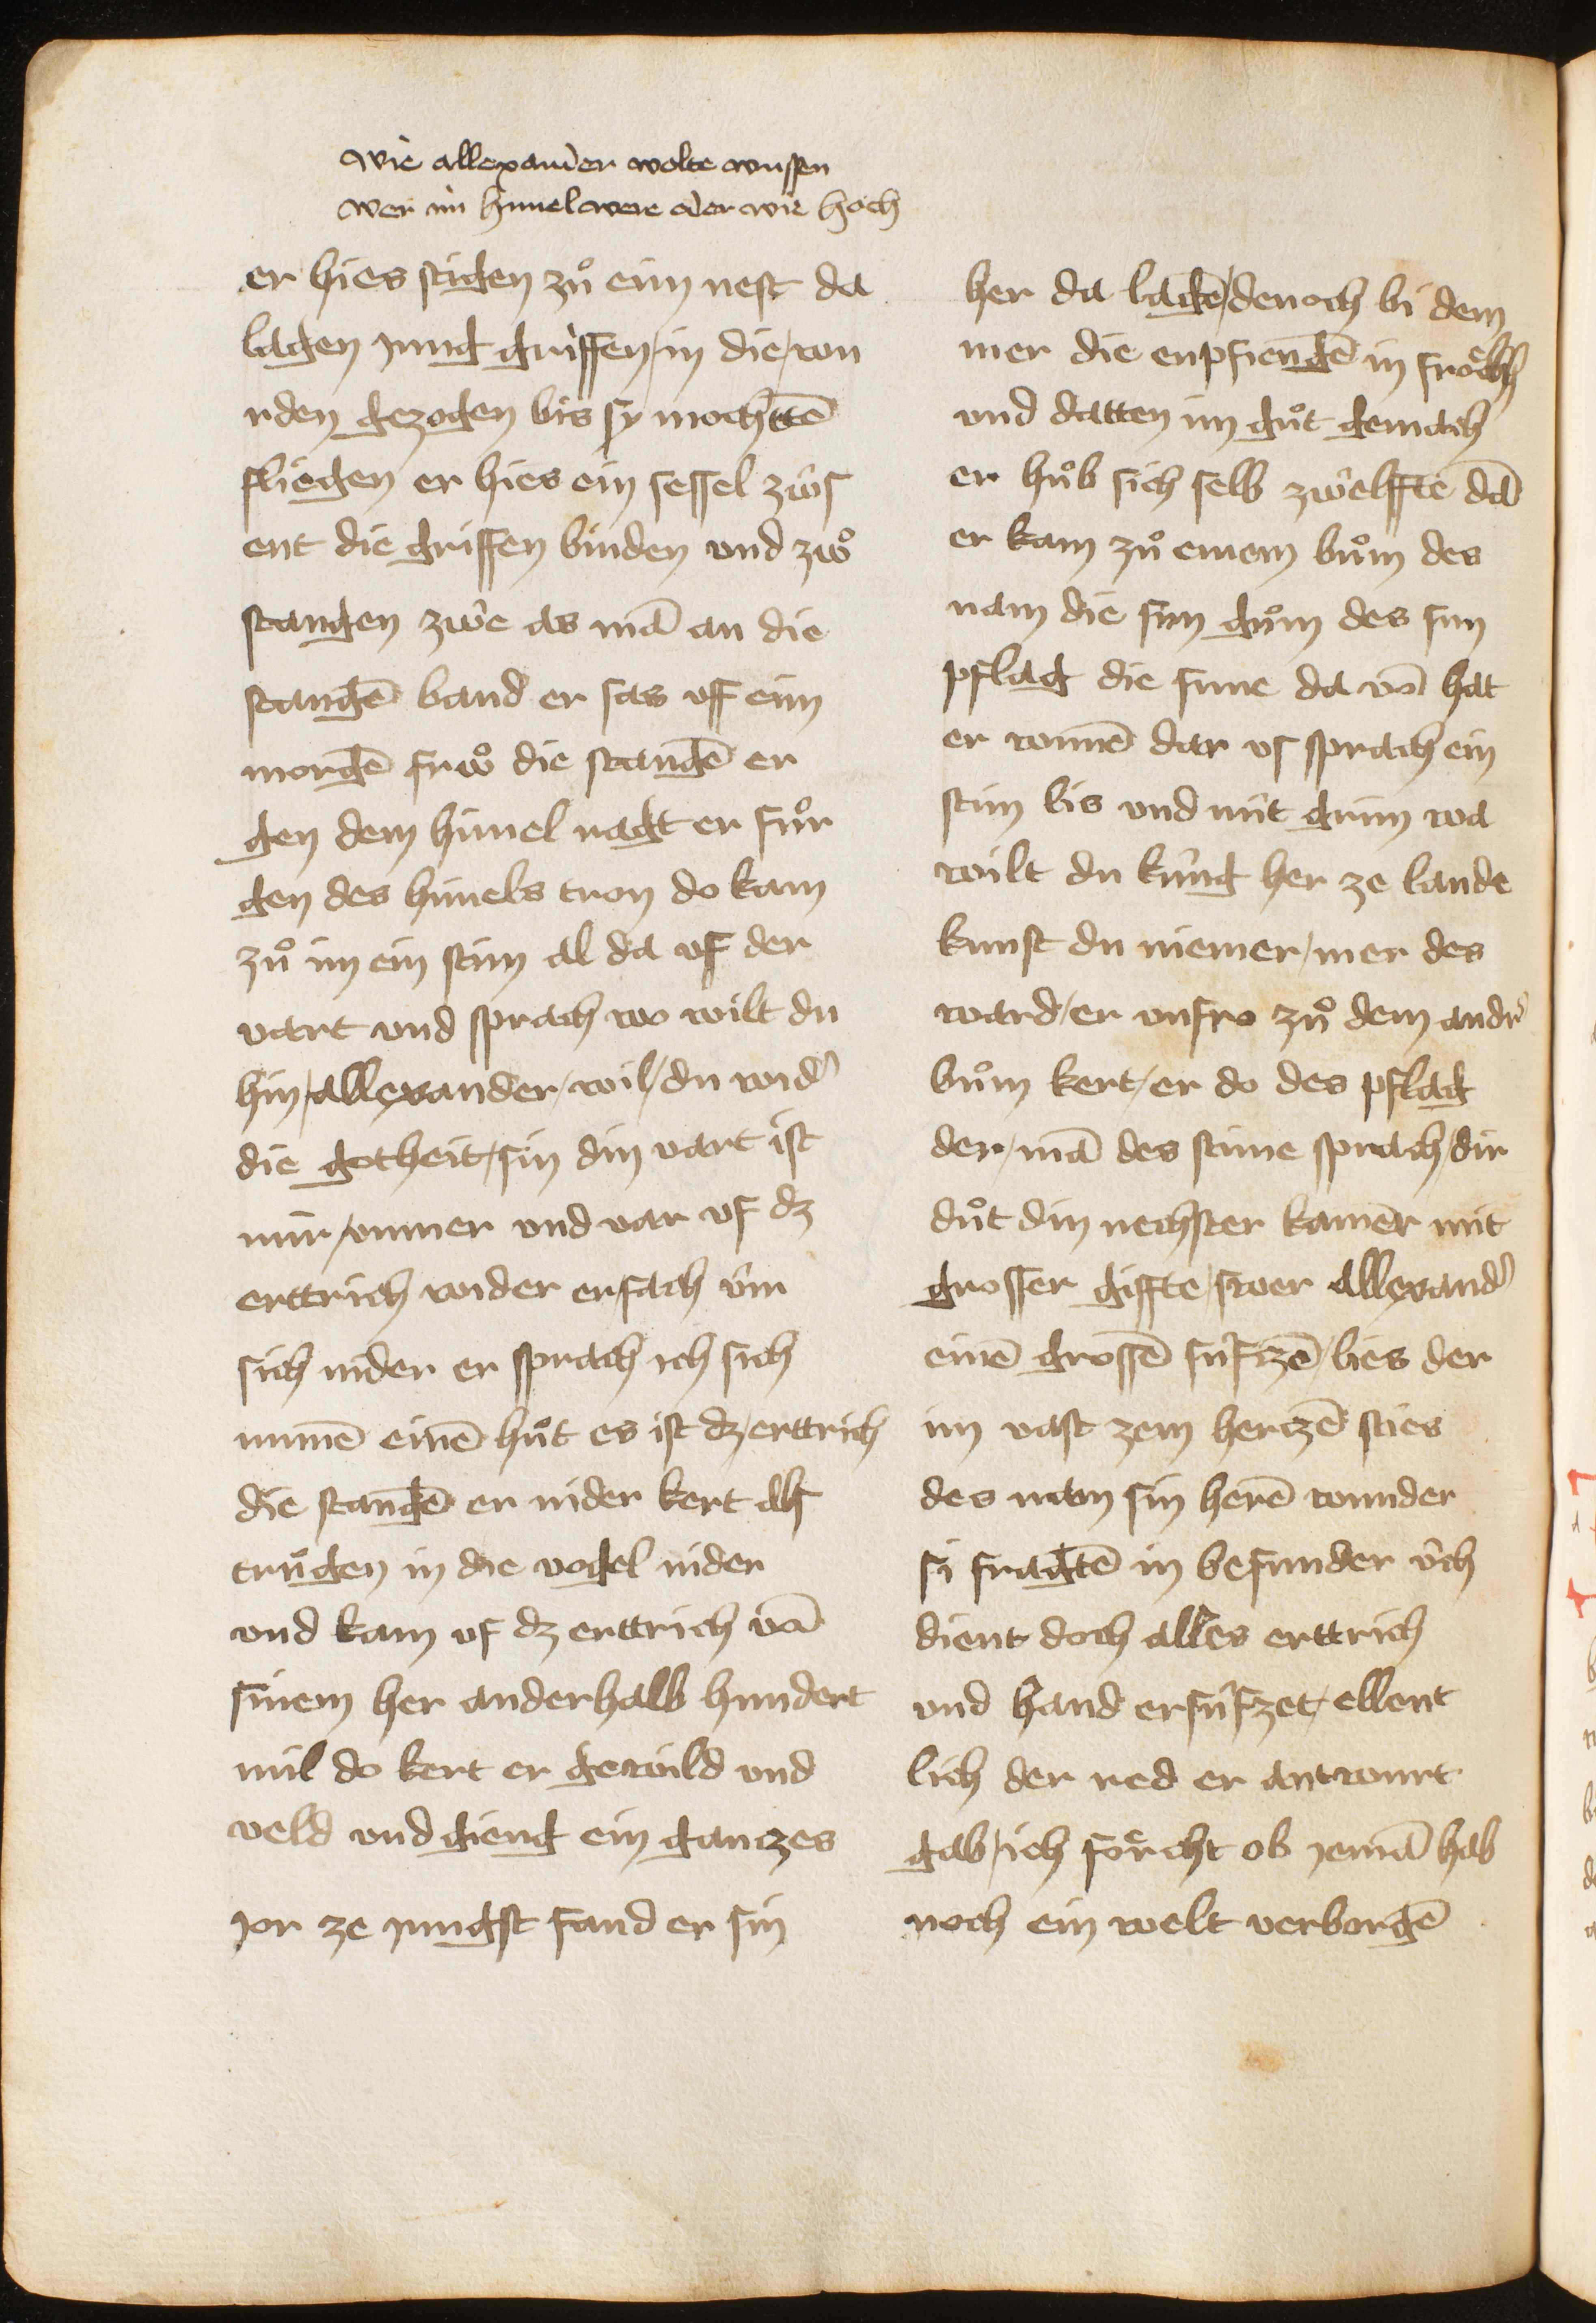 wie allexander wolte wussen
wer im himel were oder wie hoch
er hies stigen zuͦ eim nest da
lagen jung griffen / in die / wu
rden gezogen bis sy mochttē
fliegen er hies ein sessel zwis
ent die griffen binden vnd zwo
stangen zwe as mā an die
stangē band er sas vff eim
morgē fruͦ die stangē er
gen dem himel ragt er fuͦr
gen des himels tron do kam
zuͦ im ein stim al da vf der
vart vnd sprach wo wilt du
hin / allexander / wil / du wid᷑
die gotheit / sin din vart ist
mir / vnmer vnd var vf dz
erttrich wider er sach vm̄
sich nider er sprach ich sich
nunnē einē huͦt es ist dz / erttrich
die stangē er nider kert als
truͦgen in die vogel nider
vnd kam vf dz erttrich vō
sinem her anderhalb hundert
mil do kert er gewild vnd
veld vnd gieng ein ganczes
jor ze jungst fand er sin
her da lagē / denoch bi dem
mer die enpfiengē in froͤlich
vnd datten im guͦt gemach
er huͦb sich selb zwelffte dā
er kam zuͦ einem buͦm des
nam die sun guͦm des sun
pflag die sune da vō hat
er wunnē dar vs sprach ein
stim bis vnd mit grim wa
wilt du kúng her ze lande
kunst du niemer / mer des
ward / er vnfro zuͦ dem andr᷑
buͦm kert / er do des pflag
der / mā des stime sprach / dir
duͦt din nechster kamer mit
grosser giffte / swer allexand᷑
einē grossē súfczē / lies der
im vast zem herczē sties
des nam sin herē wunder
si fragtē in besunder úch
dient doch alles erttrich
vnd hand ersúfzet / ellent
lich der red er antwurt
gab / ich foͤrcht ob jemā hab
noch ein welt verborgē